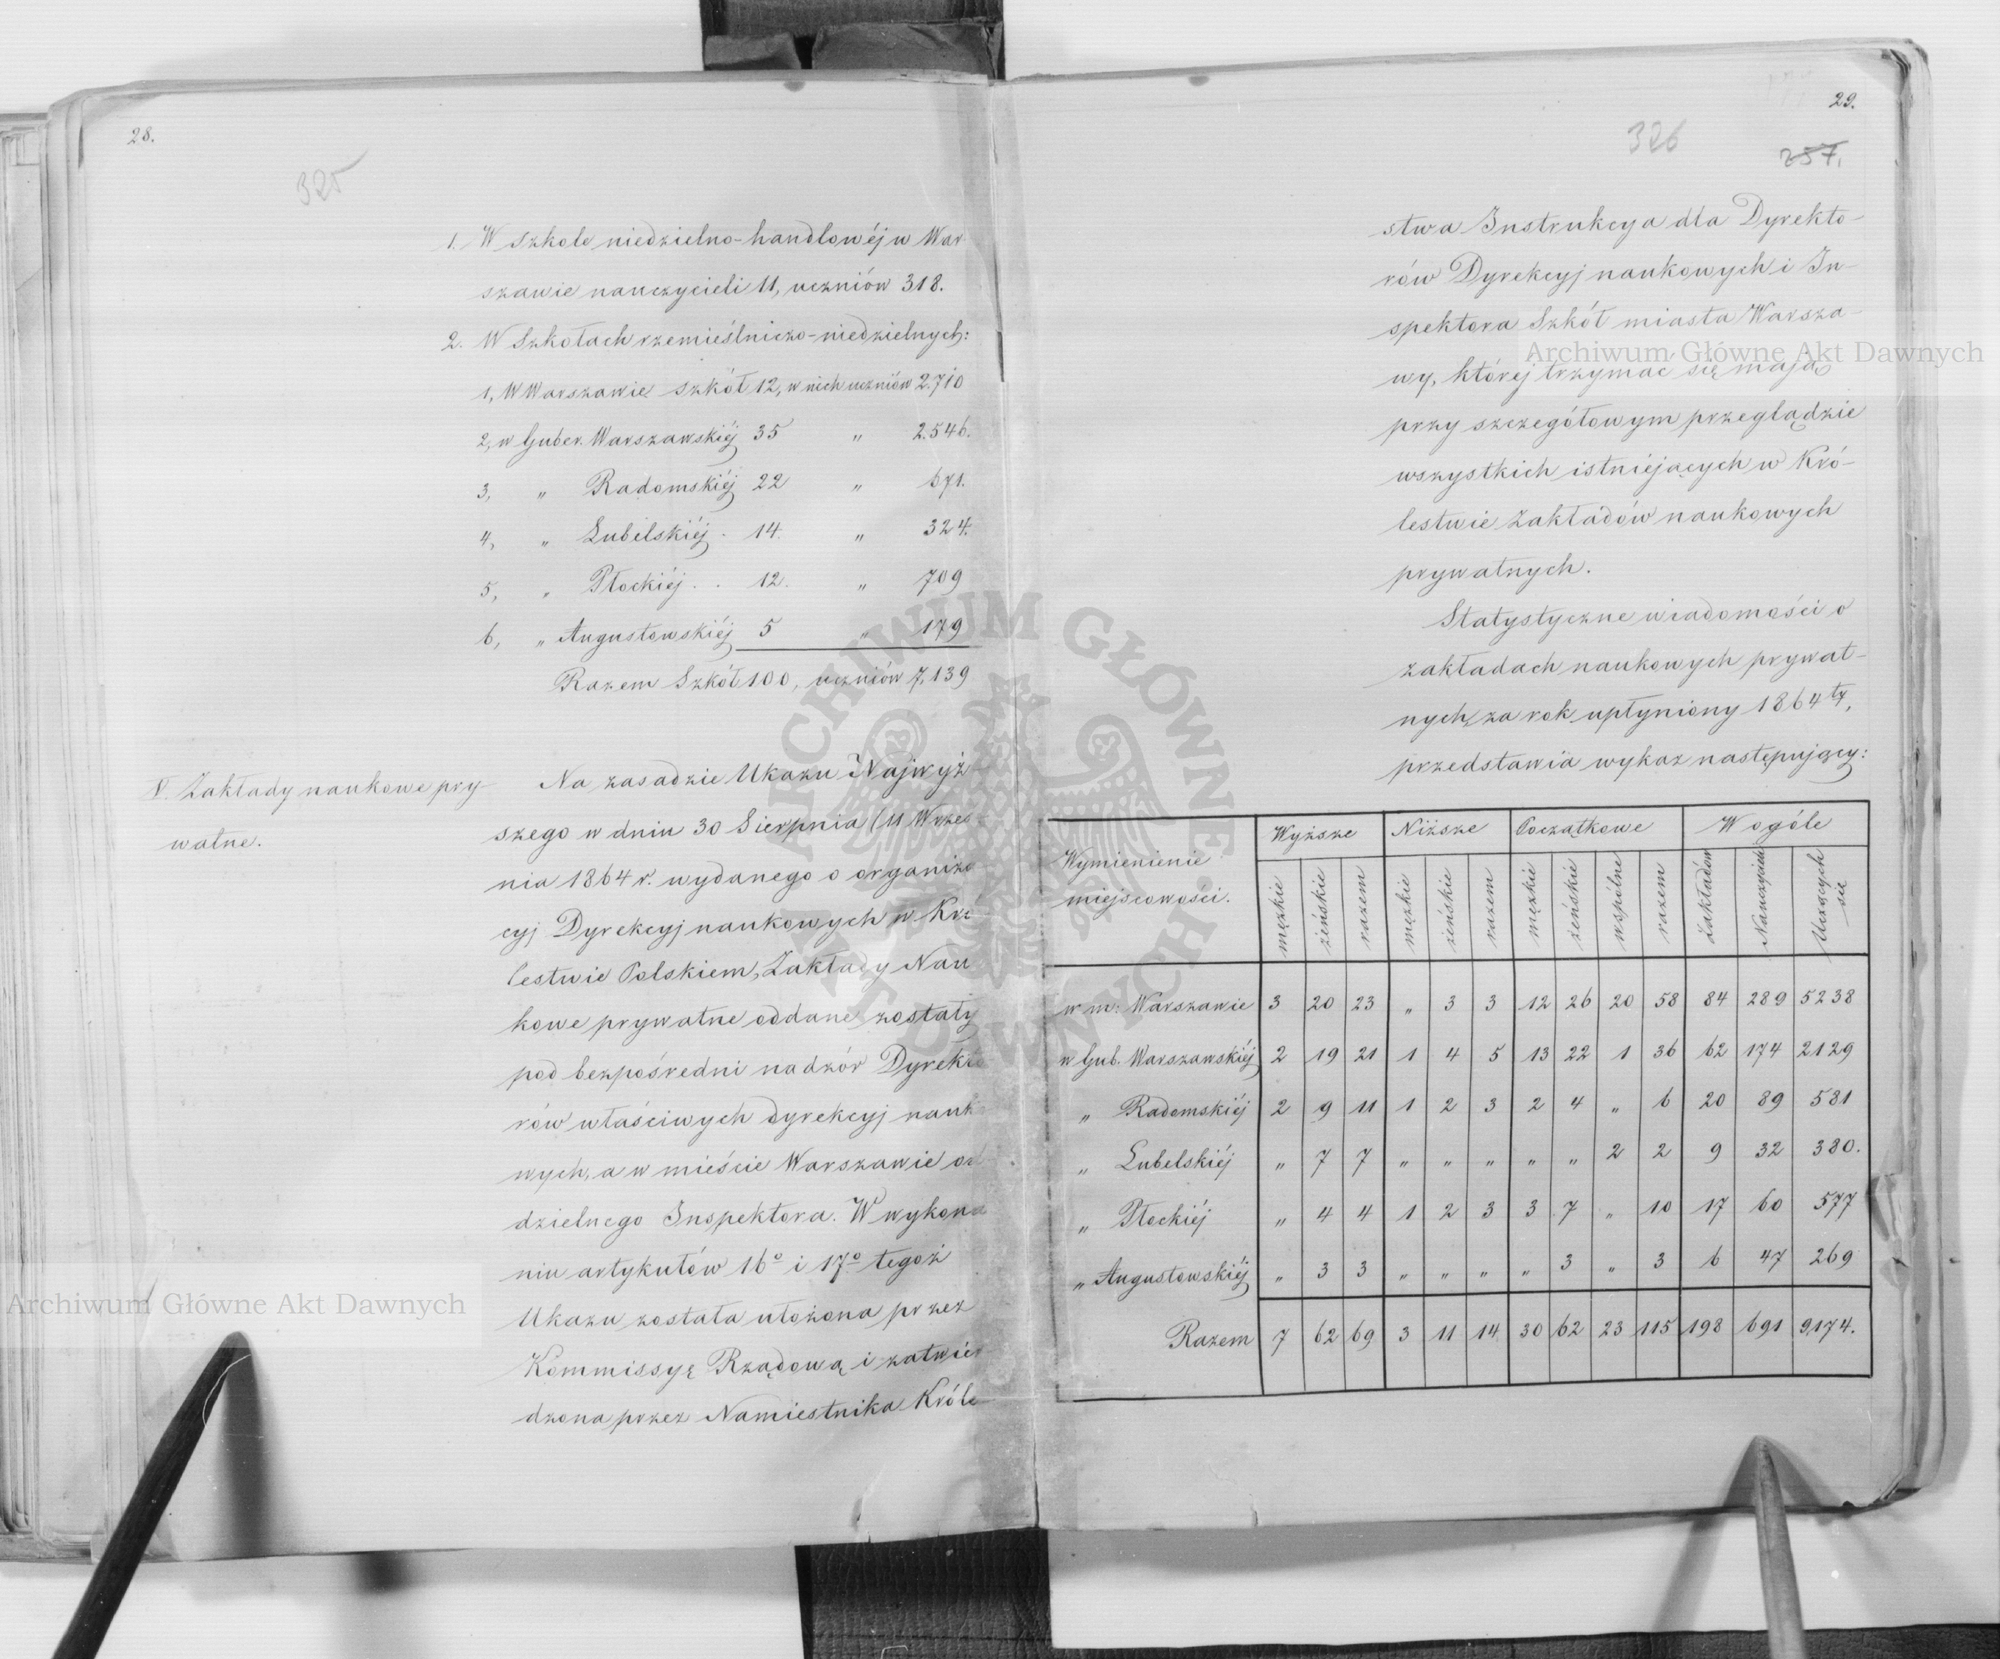 28.
325
1. W Szkole niedzielno-handlowéj w War
szawie nauczycieli 11, uczniów 318.
2. W Szkołach rzemieślniczo-niedzielnych:
1, W Warszawie szkół 12, w nich uczniów 2.710
2, w Guber. Warszawskiéj 35 " 2.546.
3, " Radomskiéj 22 " 671.
4, " Lubelskiéj . 14. " 324.
5, " Płockiéj . . 12. " 709
6, " Augustowskiéj 5 " 179
Razem Szkół 100, uczniów 7,139
V. Zakłady naukowe pry-
watne.
Na zasadzie Ukazu Najwyż-
szego w dniu 30 Sierpnia (11 Wrześ
nia 1864 r. wydanego o organiza
cyj Dyrekcyj naukowych w Kró
lestwie Polskiem, Zakłady Nau
kowe prywatne oddane zostały
pod bezpośredni nadzór Dyrekto
rów właściwych dyrekcyj nauko
wych, a w mieście Warszawie od
dzielnego Inspektora. W wykona
niu artykułów 16º i 17º tegoż
Ukazu została ułożona przez
Kommissyę Rządową i zatwier
dzona przez Namiestnika Króle-
29.
326
257.
stwa Instrukcya dla Dyrekto-
rów Dyrekcyj naukowych i In-
spektora Szkół miasta Warsza-
wy, któréj trzymać się mają
przy szczegółowym przeglądzie
wszystkich istniejących w Kró-
lestwie Zakładów naukowych
prywatnych.
Statystyczne wiadomości o
zakładach naukowych prywat-
nych, za rok upłyniony 1864ty,
przedstawia wykaz następujący:
Wymienienie miejscowości. Wyższe Niższe Początkowe W ogóle
męzkie żeńskie razem męzkie żeńskie razem męzkie żeńskie wspólne razem Zakładów Nauczycieli Uczących się
w m: Warszawie 3 20 23 " 3 3 12 26 20 58 84 289 5238
w Gub. Warszawskiéj 2 19 21 1 4 5 13 22 1 36 62 174 2129
" Radomskiéj 2 9 11 1 2 3 2 4 " 6 20 89 581
" Lubelskiéj " 7 7 " " " " " 2 2 9 32 380.
" Płockiéj " 4 4 1 2 3 3 7 " 10 17 60 577
" Augustowskiéj " 3 3 " " " " 3 " 3 6 47 269
Razem 7 62 69 3 11 14 30 62 23 115 198 691 9,174.
Archiwum Główne Akt Dawnych
Archiwum Główne Akt Dawnych
ARCHIWUM GŁÓWNE AKT DAWNYCH